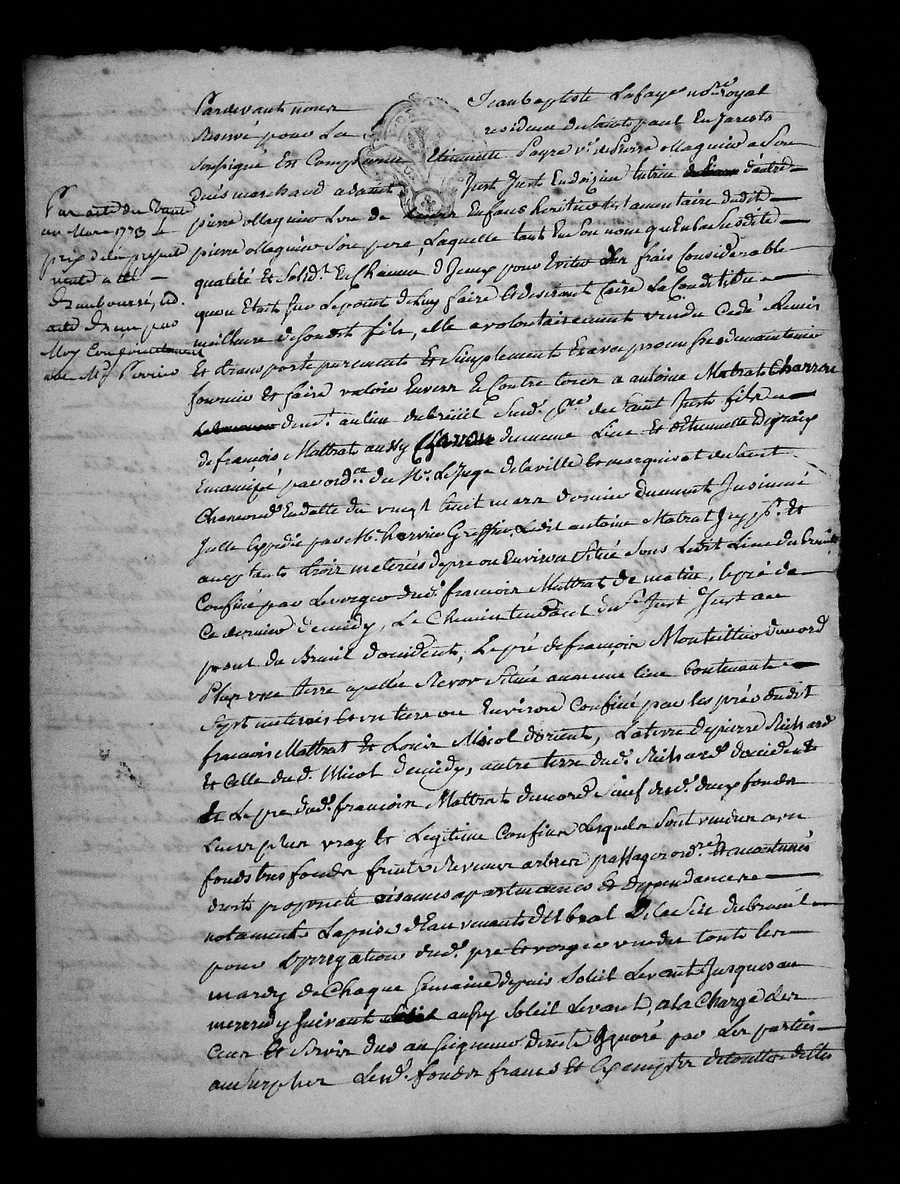 Pardevant nous Jean baptiste Lafaye no.re royal
Reservé pour La residence de saint paul En Jarests
Soussigné Est Comparue Etiennette Payre v.e de pierre Maquin a Son
vivant marchand a Saint Just Just En doizieu tutrice d'autre
pierre Maquin L'un de Enfans heritier testamentaire dudit
pierre Maquin Son pere, Laquelle tant En Son nom qu'En la Susditte
qualité Et Solid.t En Chacune d'Iceux pour Eviter des frais Considerable
quon Etoit Sur Le point de Luy faire Et desirant faire La Condition
meilleure de Sondit fils, elle a volontairement vendu Cedé Remis
Et transporté purement Et Simplement Et avec promesse de maintenir
fournir Et faire valoir Envers Et Contre tous a antoine Matrat Charron
dem.t au lieu du breüil Sud. p.sse de Saint Just fils
de françois Mattrat aussy Charron du meme Lieu Et d'Etiennette
Emancipé par ord.ce de M.r Le Juge de la ville Et marquisat de Saint
Chamond En datte du vingt huit mars dernier duement Insinué
Icelle Expediée par M.e hervier Greffier, Ledit antoine Matrat Icy p.nt Et
acceptant trois meterées de pré ou Environ Situé Sous Ledit Lieu du breüil
Confiné par Le verger dud. françois Mattrat de matin, le pré de
Ce dernier de midy, Le Chemin tendant du S.t Just Just au
pont du breuil d'occident, Le pré de françois Montellier du nord
Plus une Terre apellée Revor Située au meme lieu Contenant
Sept meterées Et un tiers ou Environ Confiné par les prés dudit
françois Mattrat Et Louis Micol d'orient, La terre de pierre Richard
Et Celle dud. Micol de midy, autre terre dud. Richard d'occident
Et Le pré dud. françois Mattrat du nord Sauf desd. deux fonds
Leurs plus vray Et Legitime Confins Lesquels Sont vendus avec
fonds tres fonds fruits Revenus arbres passages ord.res Et accoutumés
droits proprieté aisances apartenances Et dependances
notament La prise d'Eau venant du beal de la Sie du breüil
pour L'Irrigation dud. pré Et verger vendu touts les
mardy de Chaque Semaine depuis Soleil Levant Jusques au
mercredy Suivant aussy Soleil Levant, a la Charge des
Cens Et Servis dus au Seigneur direct Ignoré par Les parties
au Surplus Lesd. fonds francs Et Exempts de touttes dettes
Par acte du Trente
un Mars 1778 le
prix de la presente
vente a été
Remboursé, led.
acte Reçu par
Moy Conjointement
avec M.e Perrin